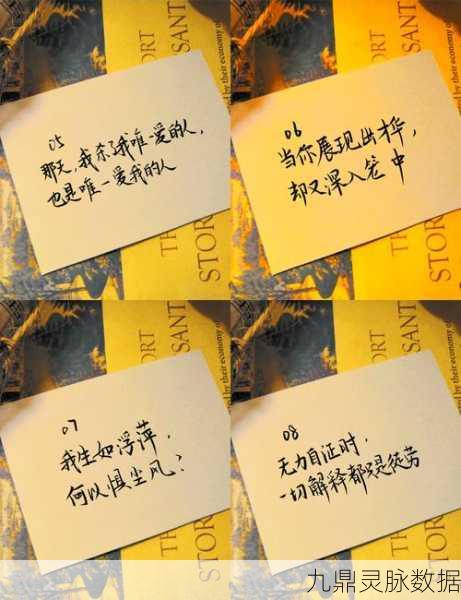 ORT
SANT
05
那天,我杀了我唯一爱的人,
也是唯一爱我的人
STOR
ORT
SANT
by their economy of
06
当你展现出才华,
却又深入笼中
TH
STOR
ORT
SANT
07
我生如浮萍,
何以惧尘风?
STOR
ORT
SANT
by their economy of
08
无力自证时,
一切解释都只是徒劳
STOR
九鼎灵脉数据